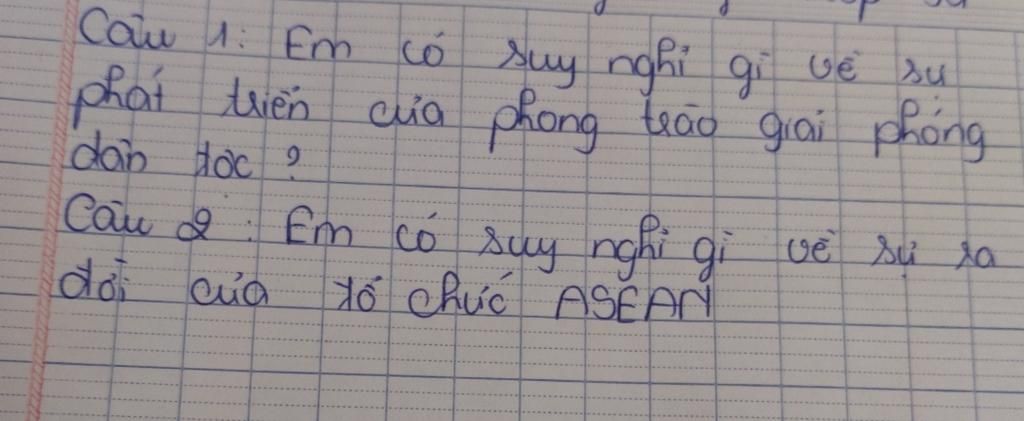 Câu 1: Em có suy nghĩ gì về sự
phát triển của phong trào giải phóng
dân tộc ?
Câu 2 : Em có suy nghĩ gì về sự ra
đời của tổ chức ASEAN